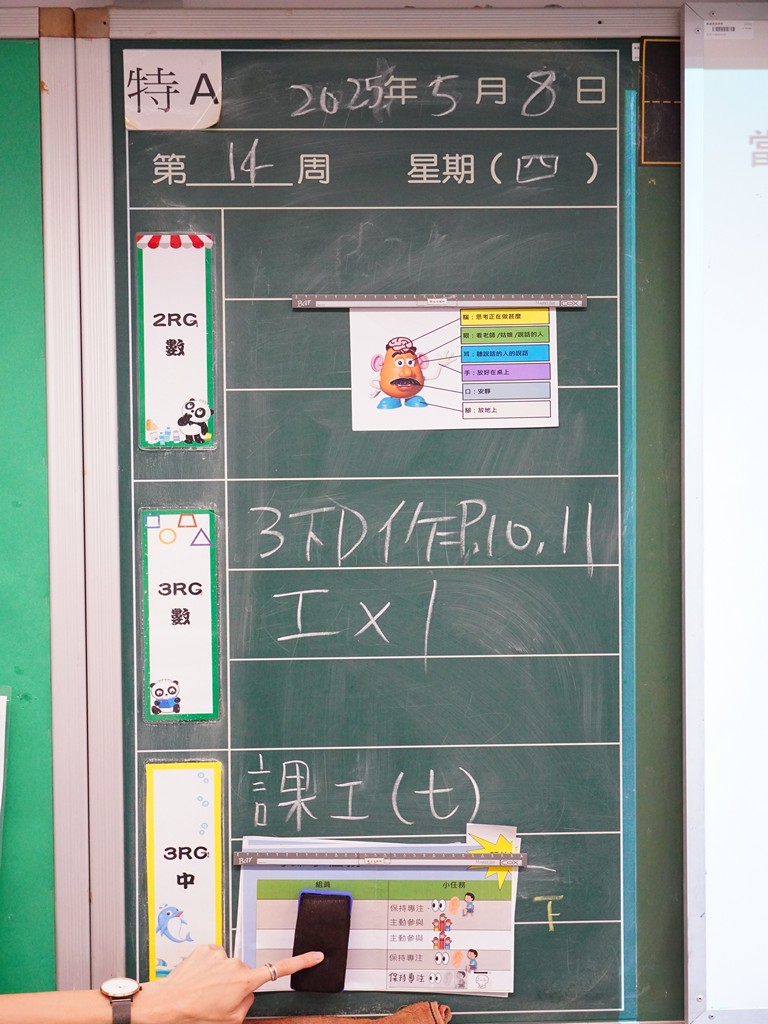 特A
2025年5月8日
第14周 星期(四)
2RG
數
腦：思考正在做甚麼
眼：看老師/姑娘/說話的人
耳：聽說話的人的說話
手：放好在桌上
口：安靜
腳：放地上
3RG
數
3下D作P.10,11
工x1
3RG
中
課工(七)
組員 小任務
保持專注
主動參與
主動參與
保持專注
保持專注
下
當